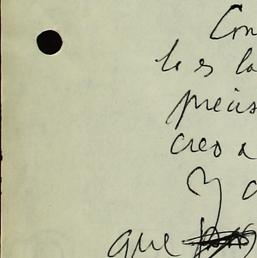 Con
le es la
precis
creo a
y
que